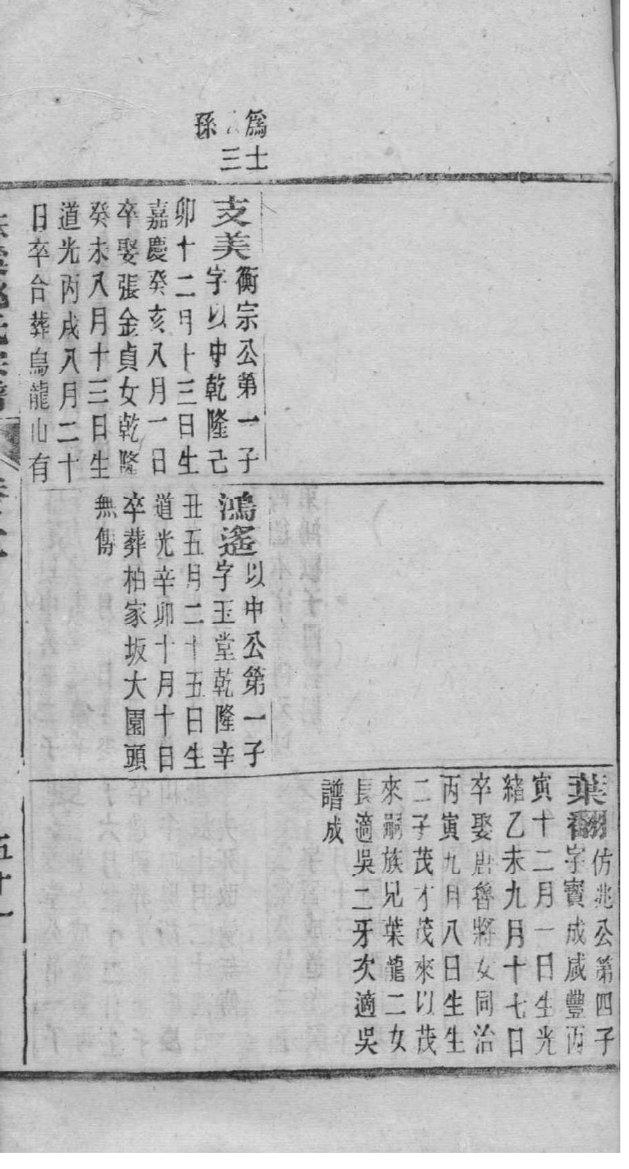 爲士
三
孫
支美衡宗公第一子
字以中乾隆己
卯十二月十三日生
嘉慶癸亥八月一日
卒娶張金貞女乾隆
癸未八月十三日生
道光丙戌八月二十
日卒合葬烏龍山有
鴻遙以中公第一子
字玉堂乾隆辛
丑五月二十五日生
道光辛卯十月十日
卒葬柏家坂大園頭
無傳
葉翻仿兆公第四子
字寶成咸豐丙
寅十二月一日生光
緒乙未九月十七日
卒娶唐魯將女同治
丙寅九月八日生生
二子茂才茂來以茂
來嗣族兄葉龍二女
長適吳二牙次適吳
譜成
五十一